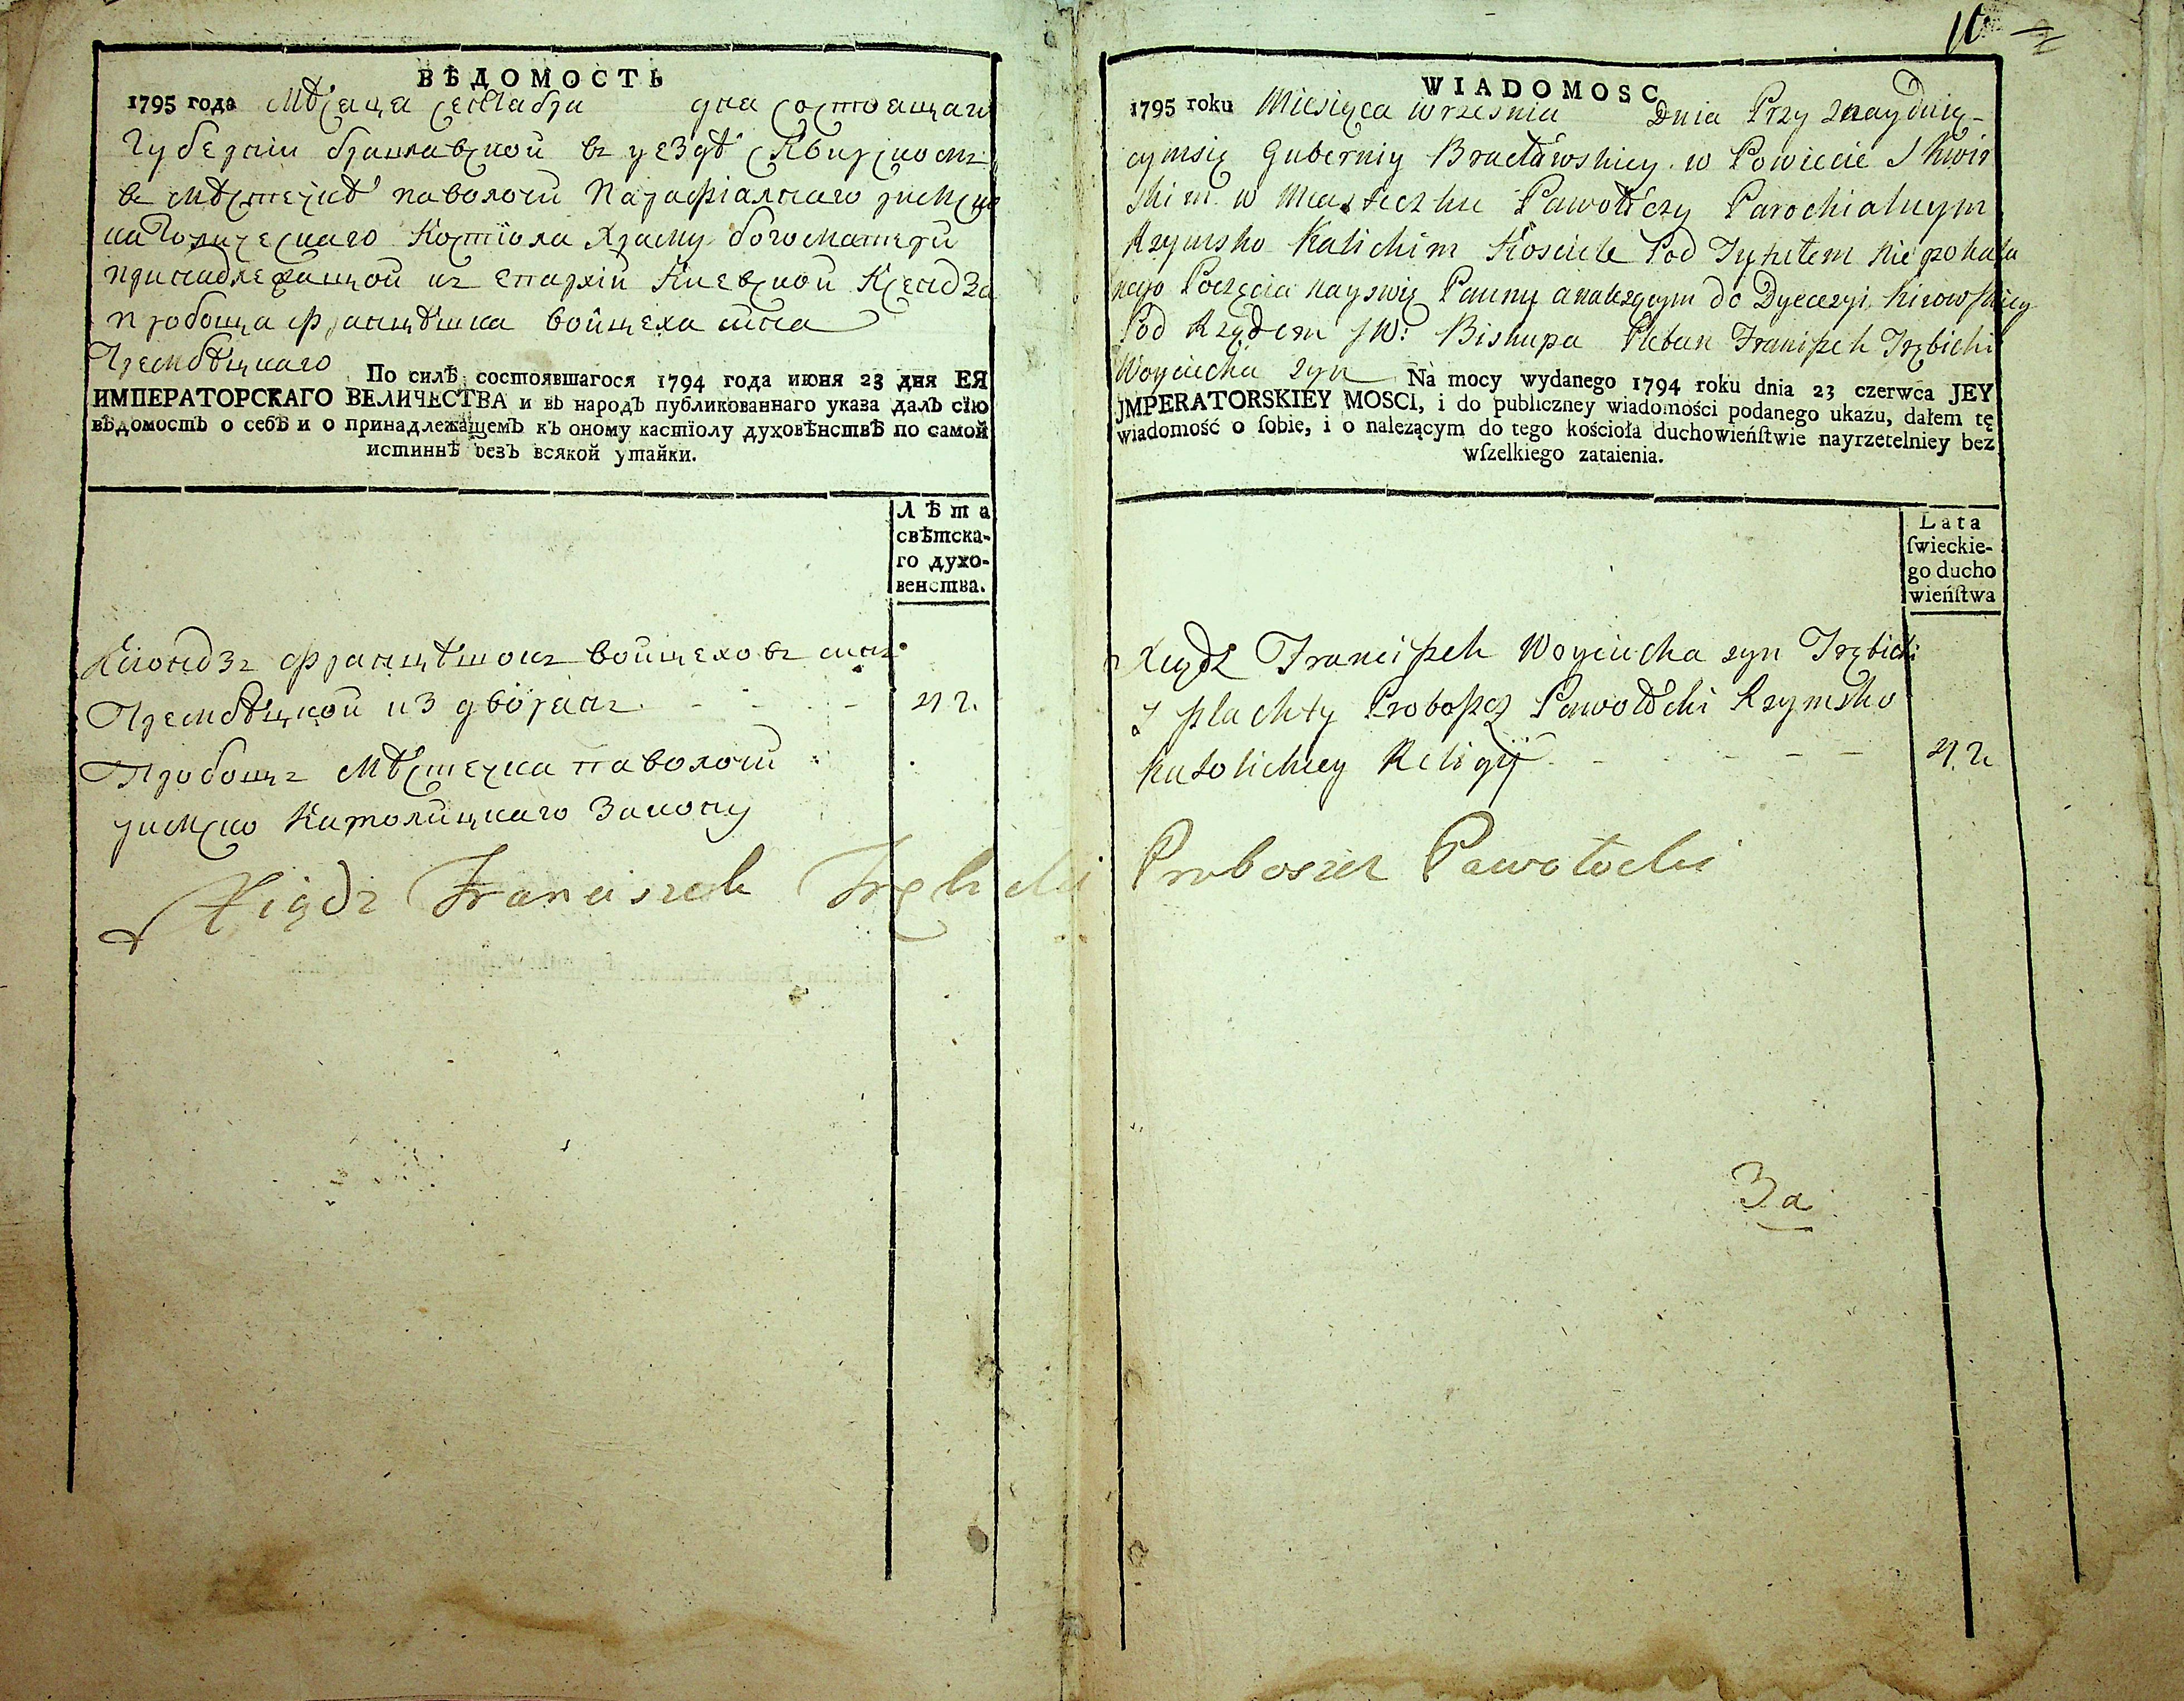 ВѢДОМОСТЬ
1795 года Мѣсяца сентября дня состоящаго
Губернии брацлавской въ уездѣ Сквирскомъ
въ мѣстечкѣ паволочи Парафіалнаго римско
католическаго Костіола Храму богоматери
принадлежащой къ епархіи Киевской Ксендза
пробоща францѣшка войцеха сына
Трембѣцкаго По силѣ состоявшагося 1794 года июня 23 дня ЕЯ
ИМПЕРАТОРСКАГО ВЕЛИЧЕСТВА и въ народъ публикованнаго указа далъ сїю
вѣдомость о себѣ и о принадлежащемъ къ оному кастїолу духовѣнствѣ по самой
истиннѣ безъ всякой утайки.
Лѣта
свѣтска-
го духо-
венства.
Ксіондзъ францѣшокъ войцеховъ сынъ
Трембѣцкой из дворянъ 42.
Пробощъ мѣстечка паволочи
римско Католицкаго Закону
Xiądz Franciszek Trębicki Proboszcz Pawołocki
WIADOMOSC
1795 roku Miesięca Września Dnia Przy znayduię-
cymsię Gubernij Bracławskiey w Powiecie Skwir
skim w Miasteczku Pawołoczy Parochialnym
Rzymsko Katlickim Kościele Pod Tytułem Niepokala
nego Poczęcia nayswię Panny a należącym do Dyecezyi Kiiowskiey
Pod Rządem JW: Biskupa Pleban Franiszek Trębicki
Woyciecha syn Na mocy wydanego 1794 roku dnia 23 czerwca JEY
JMPERATORSKIEY MOSCI, i do publiczney wiadomości podanego ukazu, dałem tę
wiadomość o ſobie, i o nalezącym do tego kościoła duchowieńſtwie nayrzetelniey bez
wſzelkiego zataienia.
Lata
ſwieckie-
go ducho
wieńſtwa
Xiądz Franciszek Woyciecha syn Trębicki
z szlachty Proboszcz Pawołocki Rzymsko
Katolickiey Religij 42
3a